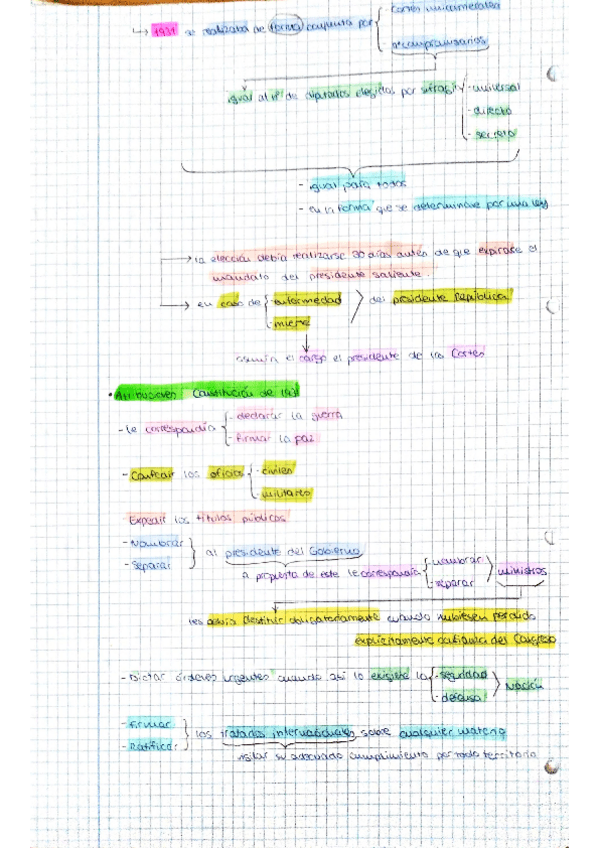 Cortes unicamerales
↳ 1931 se realizaba de forma conjunta por
compromisarios
igual al nº de diputados elegidos por sufragio
- universal
- directo
- secreto
- igual para todos
- en la forma que se determinase por una ley
→ la elección debía realizarse 30 días antes de que expirase el
mandato del presidente saliente.
→ en caso de - enfermedad del presidente República
- muerte
el cargo el presidente de las Cortes
• Atribuciones Constitución de 1931
- le correspondía - declarar la guerra
- firmar la paz
- los oficios - civiles
- militares
- Expedir los títulos públicos
- Nombrar
- Separar
al presidente del Gobierno
a propuesta de este le correspondía - nombrar
- separar
ministros
les debía destituir obligatoriamente cuando hubiesen perdido
explícitamente confianza del Congreso
- Dictar órdenes urgentes cuando así lo exigiese la - seguridad
- defensa
Nación
- Firmar
- Ratificar
los tratados internacionales sobre cualquier materia
vigilar su adecuado cumplimiento por todo territorio